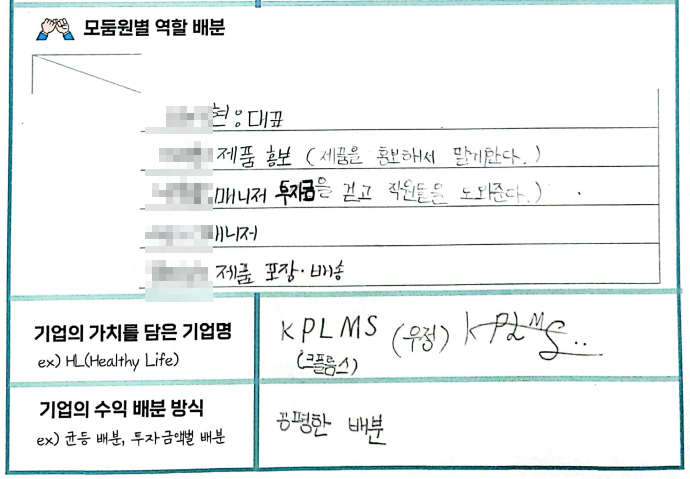 모둠원별 역할 배분
현: 대표
제품 홍보 (제품을 홍보해서 말게한다.)
매니저 투자금을 걷고 직원들은 도와준다.)
매니저
제품 포장·배송
기업의 가치를 담은 기업명
ex) HL(Healthy Life)
KPLMS (우정) KPLMS..
(크플름스)
기업의 수익 배분 방식
ex) 균등 배분, 투자 금액별 배분
공평한 배분